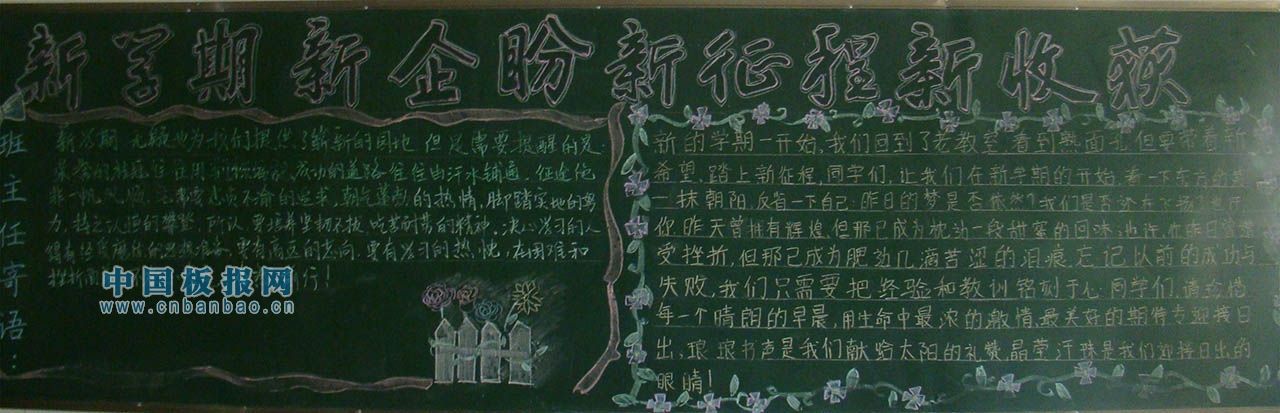 新学期新企盼新征程新收获
班主任寄语：
新学期，无疑也为我们提供了崭新的园地，但是需要提醒的是
成功的道路往往由汗水铺通，征途绝
非一帆风顺，它需要 的追求，朝气蓬勃的热情，脚踏实地的努
力，持之以恒的攀登，所以，要培养坚韧不拔、吃苦耐劳的精神，决心学习的人
要有高远的志向，要有学习的热忱，在困难和
挫折面 行！
中国板报网
www.cnbanbao.cn
新的学期一开始，我们回到了老教室，看到熟面孔，但要带着新
希望，踏上新征程，同学们，让我们在新学期的开始，看一下东方的第
一抹朝阳，反省一下自己：昨日的梦是否依然？我们是否还在
你昨天曾拥有辉煌，但那已成为枕边一段甜蜜的回味；也许，你昨日曾遭
受挫折，但那已成为腮边几滴苦涩的泪痕。忘记以前的成功与
失败，我们只需要把经验和教训铭刻于心。同学们，请珍惜
每一个晴朗的早晨，用生命中最浓的激情，最美好的期待去迎接日
出，琅琅书声是我们献给太阳的礼赞，晶莹汗珠是我们迎接日出的
眼睛！